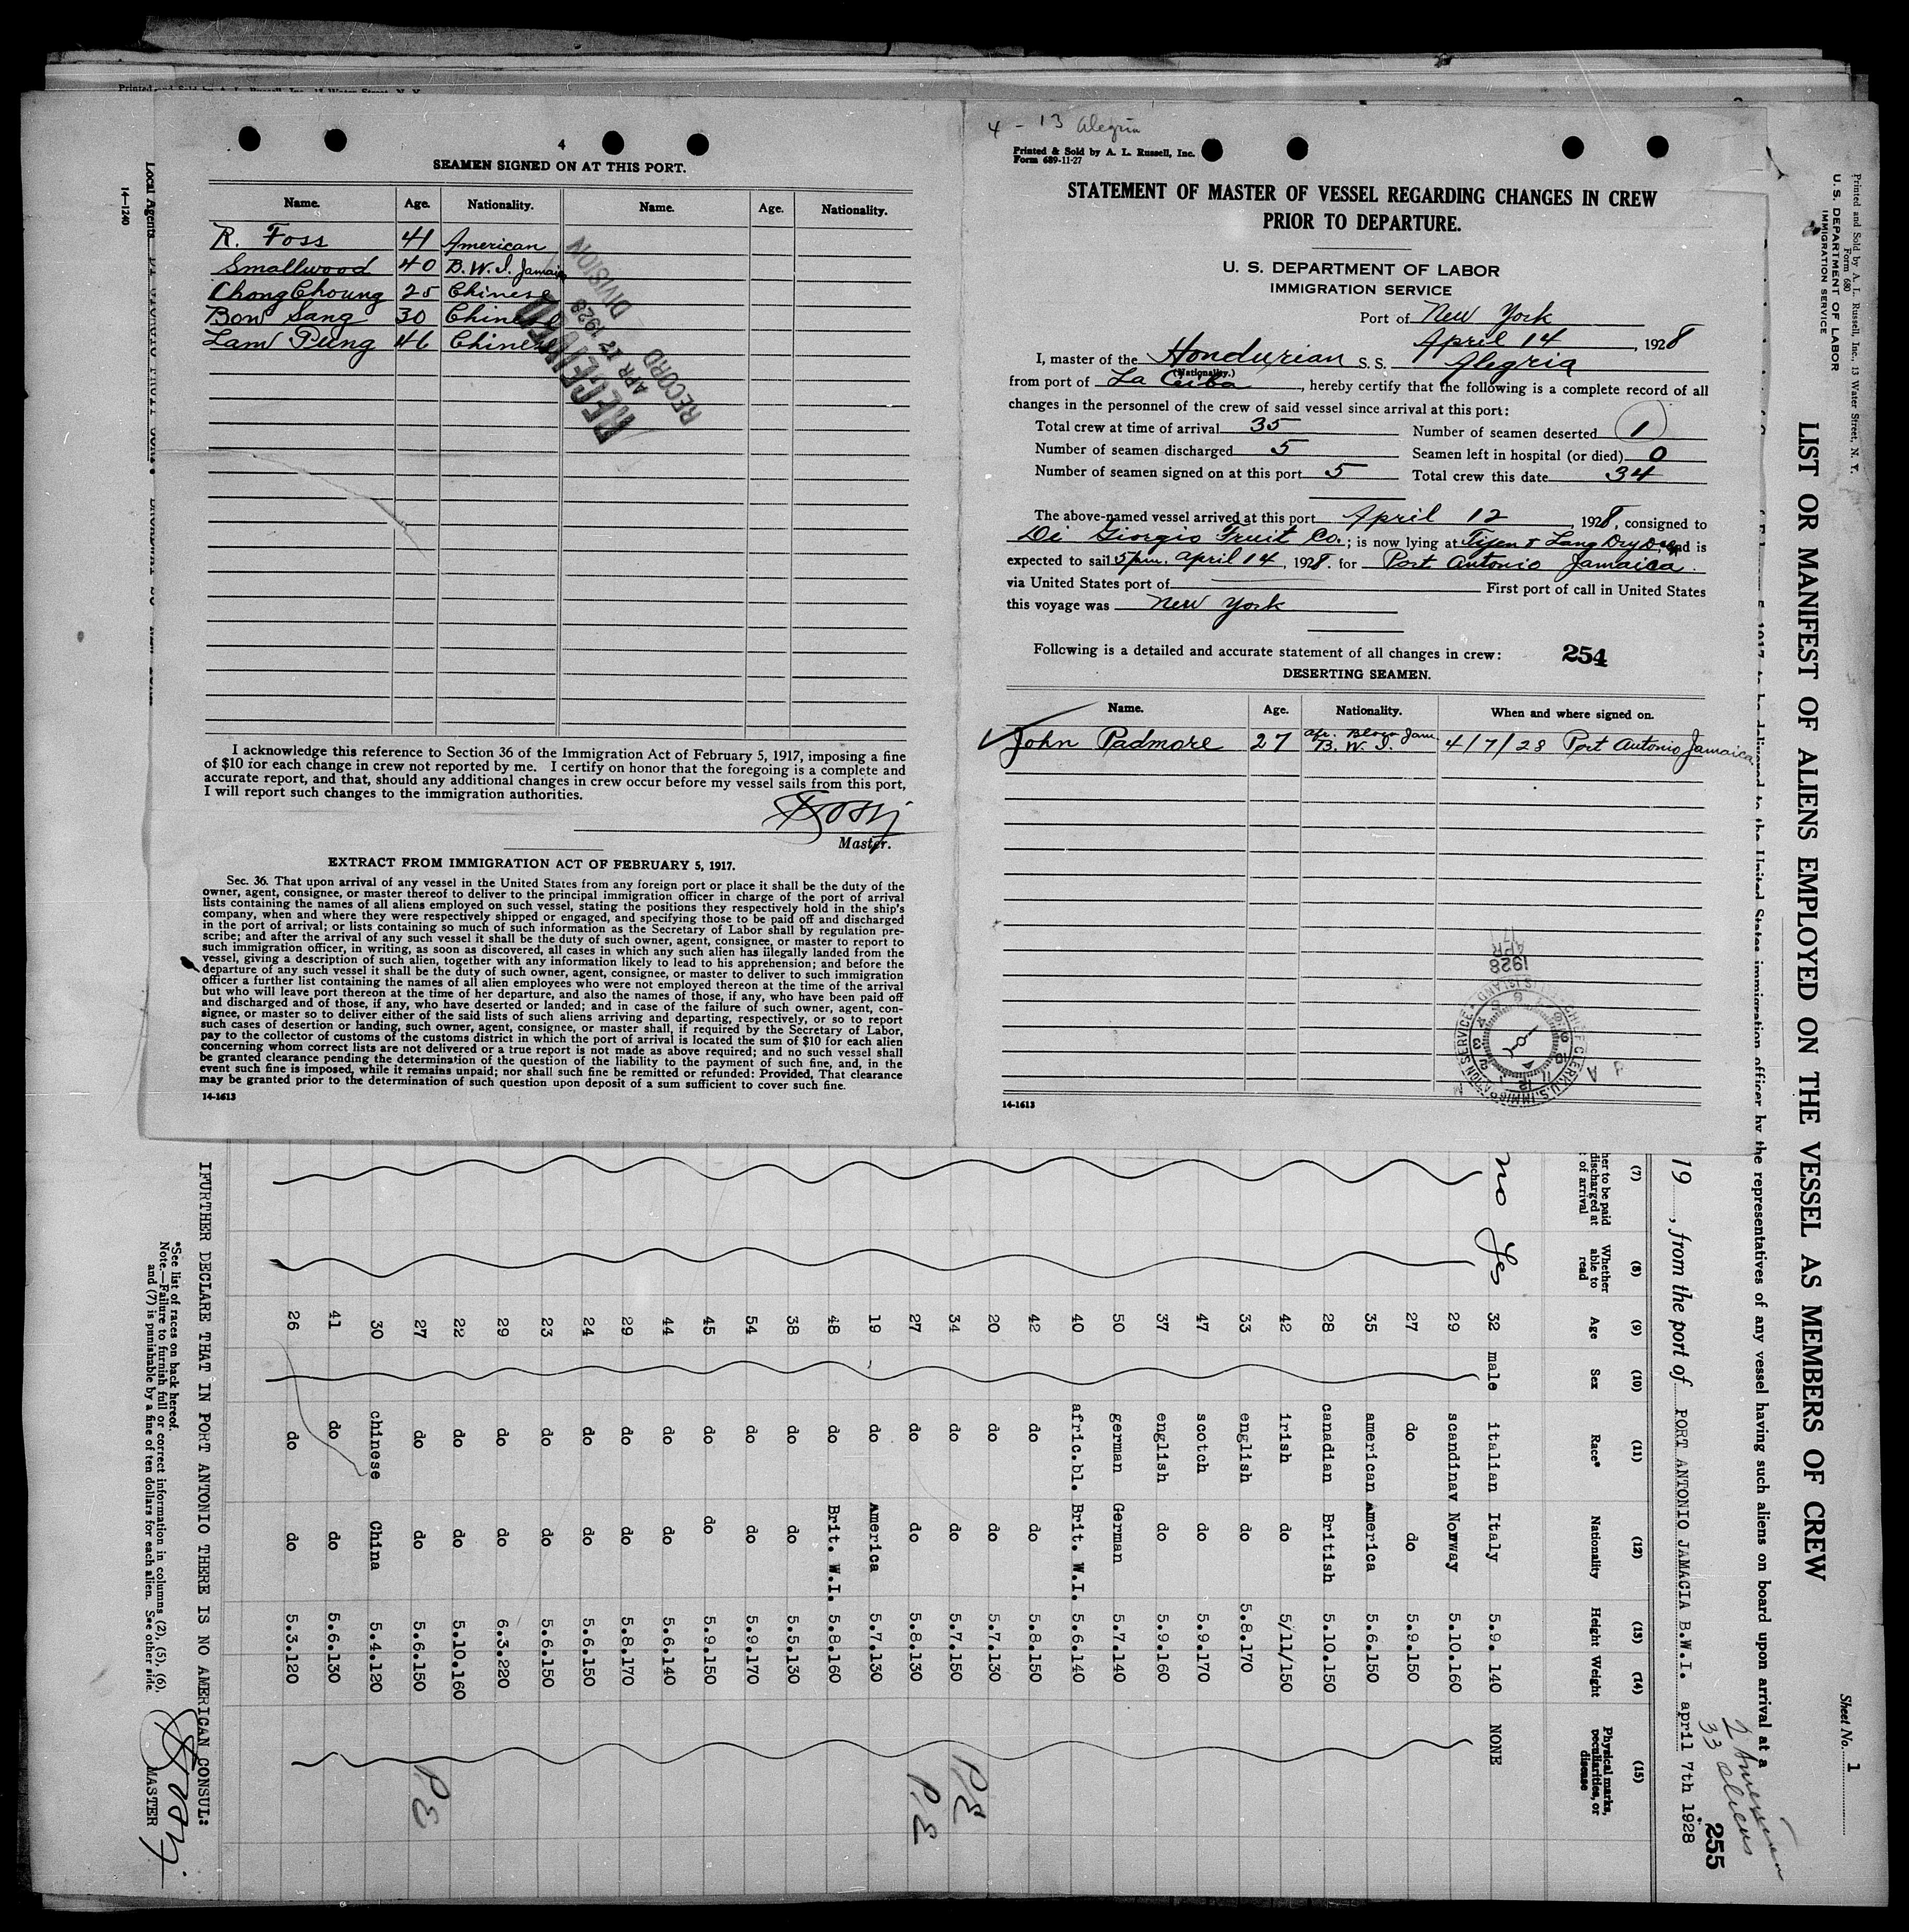 Printed and Sold by A. L. Russell, Inc., 13 Water Street, N. Y.
4
SEAMEN SIGNED ON AT THIS PORT.
Name. Age. Nationality. Name. Age. Nationality.
R. Foss 41 American
Smallwood 40 B.W.I. Jamaica
Chong Choung 25 Chinese
Bow Sang 30 Chinese
Lam Pung 46 Chinese
RECEIVED
APR 12 1928
RECORD DIVISION
I acknowledge this reference to Section 36 of the Immigration Act of February 5, 1917, imposing a fine
of $10 for each change in crew not reported by me. I certify on honor that the foregoing is a complete and
accurate report, and that, should any additional changes in crew occur before my vessel sails from this port,
I will report such changes to the immigration authorities.
Master.
EXTRACT FROM IMMIGRATION ACT OF FEBRUARY 5, 1917.
Sec. 36. That upon arrival of any vessel in the United States from any foreign port or place it shall be the duty of the
owner, agent, consignee, or master thereof to deliver to the principal immigration officer in charge of the port of arrival
lists containing the names of all aliens employed on such vessel, stating the positions they respectively hold in the ship's
company, when and where they were respectively shipped or engaged, and specifying those to be paid off and discharged
in the port of arrival; or lists containing so much of such information as the Secretary of Labor shall by regulation pre-
scribe; and after the arrival of any such vessel it shall be the duty of such owner, agent, consignee, or master to report to
such immigration officer, in writing, as soon as discovered, all cases in which any such alien has illegally landed from the
vessel, giving a description of such alien, together with any information likely to lead to his apprehension; and before the
departure of any such vessel it shall be the duty of such owner, agent, consignee, or master to deliver to such immigration
officer a further list containing the names of all alien employees who were not employed thereon at the time of the arrival
but who will leave port thereon at the time of her departure, and also the names of those, if any, who have been paid off
and discharged and of those, if any, who have deserted or landed; and in case of the failure of such owner, agent, con-
signee, or master so to deliver either of the said lists of such aliens arriving and departing, respectively, or so to report
such cases of desertion or landing, such owner, agent, consignee, or master shall, if required by the Secretary of Labor,
pay to the collector of customs of the customs district in which the port of arrival is located the sum of $10 for each alien
concerning whom correct lists are not delivered or a true report is not made as above required; and no such vessel shall
be granted clearance pending the determination of the question of the liability to the payment of such fine, and, in the
event such fine is imposed, while it remains unpaid; nor shall such fine be remitted or refunded: Provided, That clearance
may be granted prior to the determination of such question upon deposit of a sum sufficient to cover such fine.
14-1613
4 - 13 Alegria
Printed & Sold by A. L. Russell, Inc.
Form 689-11-27
STATEMENT OF MASTER OF VESSEL REGARDING CHANGES IN CREW
PRIOR TO DEPARTURE.
U. S. DEPARTMENT OF LABOR
IMMIGRATION SERVICE
Port of New York
April 14, 1928
I, master of the Hondurian S. S. Alegria
(Nationality.)
from port of La Ceiba, hereby certify that the following is a complete record of all
changes in the personnel of the crew of said vessel since arrival at this port:
Total crew at time of arrival 35 Number of seamen deserted 1
Number of seamen discharged 5 Seamen left in hospital (or died) 0
Number of seamen signed on at this port 5 Total crew this date 34
The above-named vessel arrived at this port April 12, 1928, consigned to
Di Giorgio Fruit Co.; is now lying at Tijen & Lang Dry Dock, and is
expected to sail 5 p.m. April 14, 1928. for Port Antonio Jamaica.
via United States port of First port of call in United States
this voyage was New York
Following is a detailed and accurate statement of all changes in crew: 254
DESERTING SEAMEN.
Name. Age. Nationality. When and where signed on.
John Padmore 27 Afr. Black Jam. B. W. I. 4/7/28 Port Antonio Jamaica.
1928
APR
17
CHIEF CLERK U.S. IMMIGRATION SERVICE
14-1613
Printed and Sold by A. L. Russell, Inc., 13 Water Street, N. Y.
Form 680
U. S. DEPARTMENT OF LABOR
IMMIGRATION SERVICE
Sheet No. 1
LIST OR MANIFEST OF ALIENS EMPLOYED ON THE VESSEL AS MEMBERS OF CREW
to be delivered to the United States immigration officer by the representatives of any vessel having such aliens on board upon arrival at a
2 American
33 aliens
255
19 , from the port of PORT ANTONIO JAMACIA B.W.I. april 7th 1928
(7) (8) (9) (10) (11) (12) (13) (14) (15)
her to be paid discharged at of arrival Whether able to read Age Sex Race* Nationality Height Weight Physical marks, peculiarities, or disease
no Yes 32 male italian Italy 5.9. 140 NONE
29 scandinav Noway 5.10.160
27 do do 5.9.150
35 american America 5.6.150
28 canadian British 5.10.150
42 irish do 5/11/150
33 english do 5.8.170
47 scotch do 5.9.170
37 english do 5.9.160
50 german German 5.7.140
40 afric.bl. Brit. W.I. 5.6.140
42 do do 5.8.150
20 do do 5.7.130
34 do do 5.7.150 P.E
27 do do 5.8.130 P.E
19 do America 5.7.130
48 do Brit. W.I. 5.8.160
38 do do 5.5.130
54 do do 5.9.170
45 do do 5.9.150
44 do do 5.6.140
29 do do 5.8.170
24 do do 5.6.150
23 do do 5.6.150
29 do do 6.3.220
22 do do 5.10.160
27 do do 5.6.150 P.E
30 chinese China 5.4.120
41 do do 5.6.130
26 do do 5.3.120
IFURTHER DECLARE THAT IN PORT ANTONIO THERE IS NO AMERICAN CONSUL:
*See list of races on back hereof.
Note.—Failure to furnish full or correct information in columns (2), (5), (6),
and (7) is punishable by a fine of ten dollars for each alien. See other side.
MASTER
Local Agents
14-1240